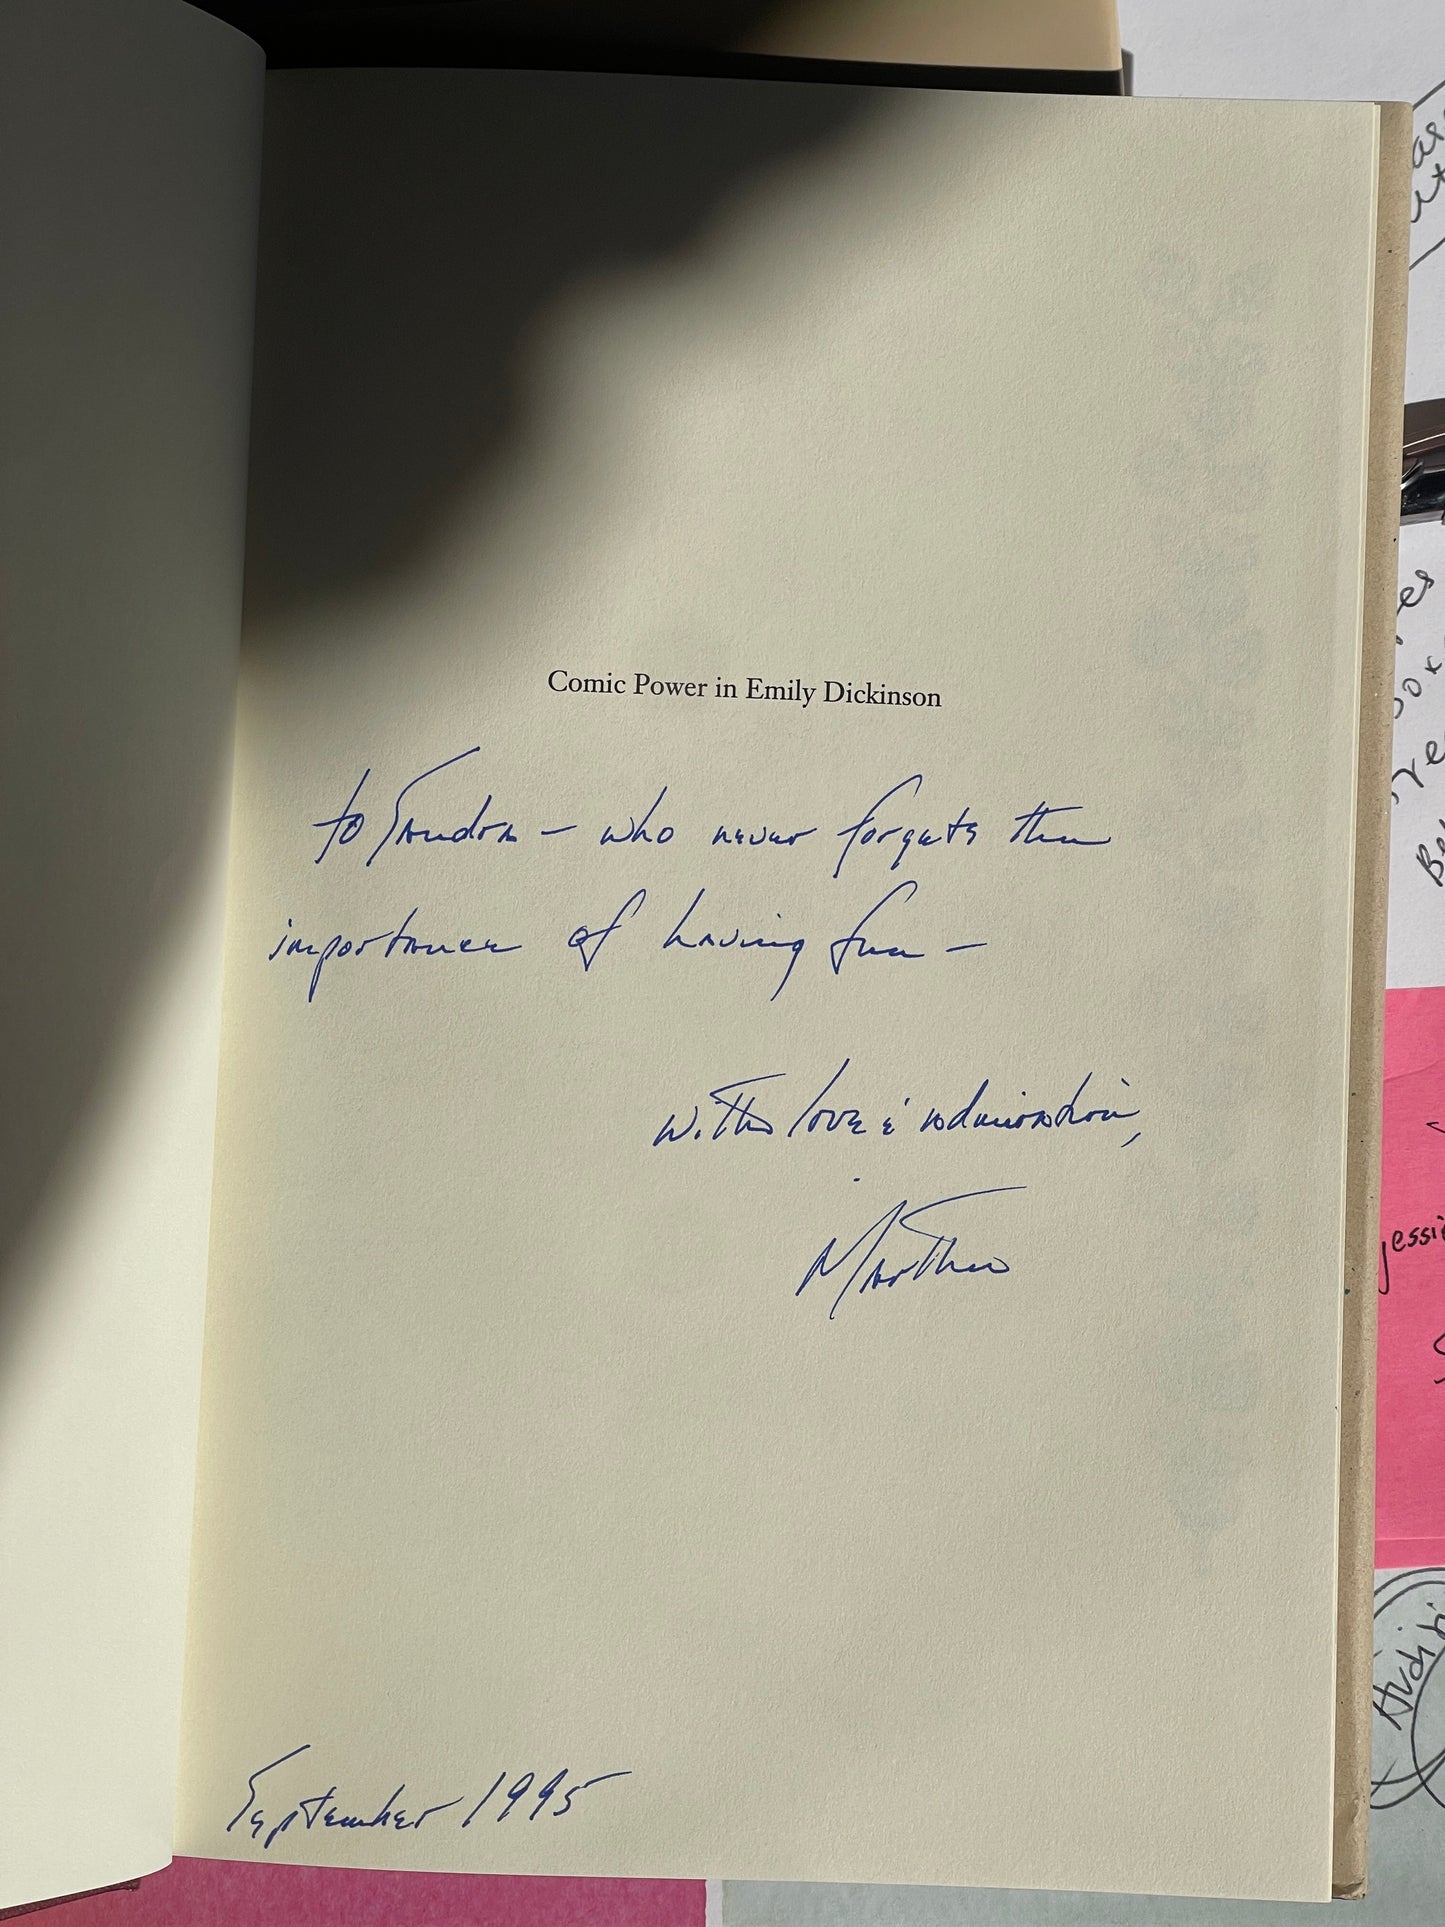 Comic Power in Emily Dickinson
to Sandra – who never forgets the
importance of having fun –
with love & admiration,
Martha
September 1995
essi
Audi